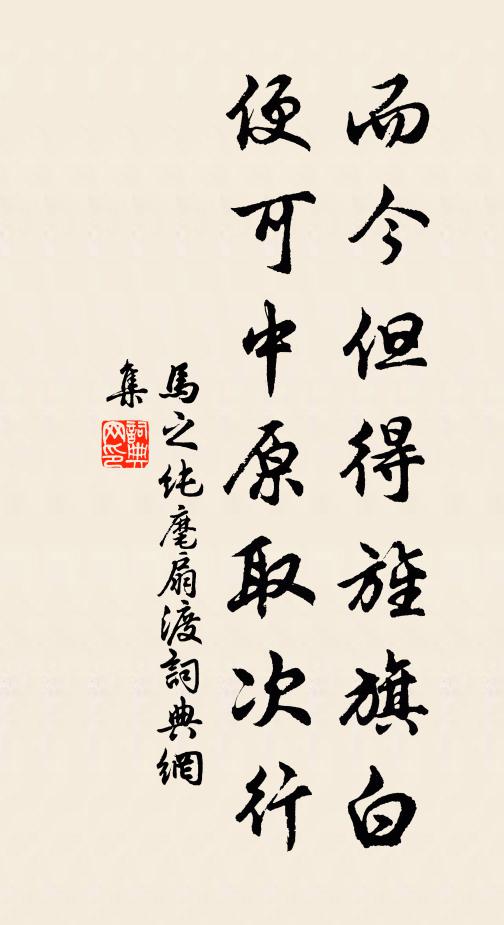 而今但得旌旗白
便可中原取次行
馬之純麾扇渡詞典網
集
詞典
网印